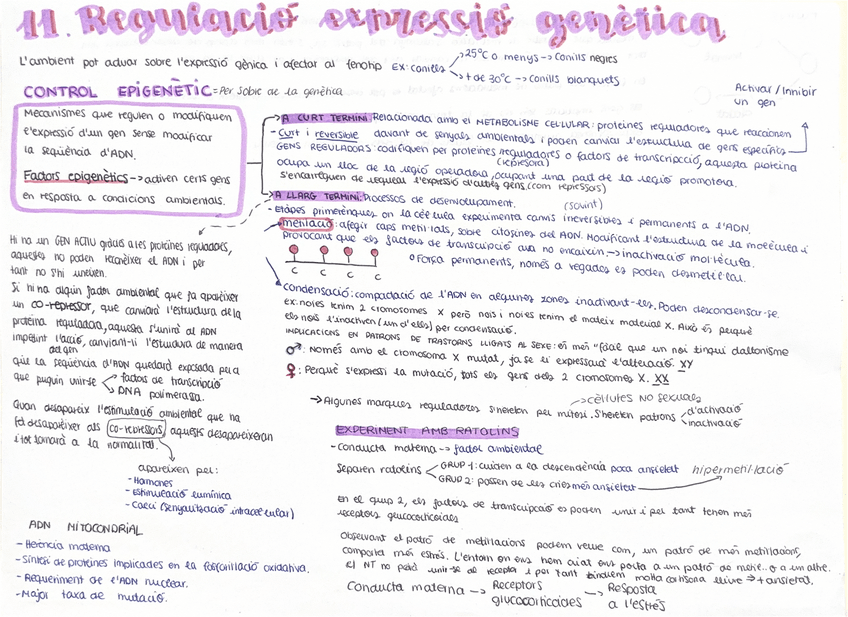 11. Regulació expressió genètica
L'ambient pot actuar sobre l'expressió gènica i afectar al fenotip Ex: conills
25°C o menys → conills negres
+ de 30°C → conills blanquets
CONTROL EPIGENÈTIC = Per sobre de la genètica
Activar / Inhibir
un gen
Mecanismes que regulen o modifiquen
l'expressió d'un gen sense modificar
la seqüència d'ADN.
Factors epigenètics → activen certs gens
en resposta a condicions ambientals.
A CURT TERMINI: Relacionada amb el METABOLISME CEL·LULAR: proteïnes reguladores que reaccionen
- Curt i reversible davant de senyals ambientals i poden canviar l'estructura de gens específics
GENS REGULADORS: codifiquen per proteïnes reguladores o factors de transcripció, aquesta proteïna
(repressora)
ocupa un lloc de la regió operadora, ocupant una part de la regió promotora.
S'encarreguen de regular l'expressió d'altres gens (com repressors)
A LLARG TERMINI: Processos de desenvolupament.
(sovint)
- Etapes primerenques on la cèl·lula experimenta canvis irreversibles i permanents a l'ADN.
metilació: afegir caps metil·lats, sobre citosines del ADN. Modificant l'estructura de la molècula i
provocant que els factors de transcripció ara no encaixin → inactivació mol·lècula.
C C C C
Força permanents, només a vegades es poden desmetil·lar.
Hi ha un GEN ACTIU gràcies a les proteïnes reguladores,
aquestes no poden reconèixer el ADN i per
tant no s'hi uneixen.
Si hi ha algún factor ambiental que fa aparèixer
un co-repressor, que canviarà l'estructura de la
proteïna reguladora, aquesta s'unirà al ADN
impedint l'acció, canviant-li l'estructura de manera
del gen
que la seqüència d'ADN quedarà exposada per a
que puguin unir-se
factors de transcripció
DNA polimerasa.
Quan desapareix l'estimulació ambiental que ha
fet desaparèixer als co-repressors, aquests desapareixeran
i tot tornarà a la normalitat.
apareixen per:
- Hormones
- Estimulació lumínica
- Calci (senyalització intracel·lular)
condensació: compactació de l'ADN en algunes zones inactivant-les. Poden descondensar-se.
ex: noies tenim 2 cromosomes X però nois i noies tenim el mateix material X. Això és perquè
els nois l'inactiven (un d'ells) per condensació.
IMPLICACIONS EN PATRONS DE TRASTORNS LLIGATS AL SEXE: és més "fàcil" que un noi tingui daltonisme
♂: Només amb el cromosoma X mutat, ja se li expressarà l'alteració. XY
♀: Perquè s'expressi la mutació, tots els gens dels 2 cromosomes X. XX
→ cèl·lules NO sexuals
→ Algunes marques reguladores s'hereten per mitosi. S'hereten patrons
d'activació
inactivació
EXPERIMENT AMB RATOLINS
- Conducta materna → factor ambiental
Separen ratolins
GRUP 1: cuiden a la descendència poca ansietat
GRUP 2: passen de les cries més ansietat
hipermetil·lació
En el grup 2, els factors de transcripció es poden unir i per tant tenen més
receptors glucocorticoides
Observant el patró de metil·lacions podem veure com, un patró de més metil·lacions,
comporta més estrés. L'entorn on ens hem criat ens porta a un patró de metil. o a un altre.
el NT no podrà unir-se al receptor i per tant tindrem molta cortisona lliure → + ansietat.
Conducta materna → Receptors glucocorticoides → Resposta a l'estrés
ADN MITOCONDRIAL
- Herència materna
- Síntesi de proteïnes implicades en la fosforil·lació oxidativa.
- Requeriment de l'ADN nuclear.
- Major taxa de mutació.